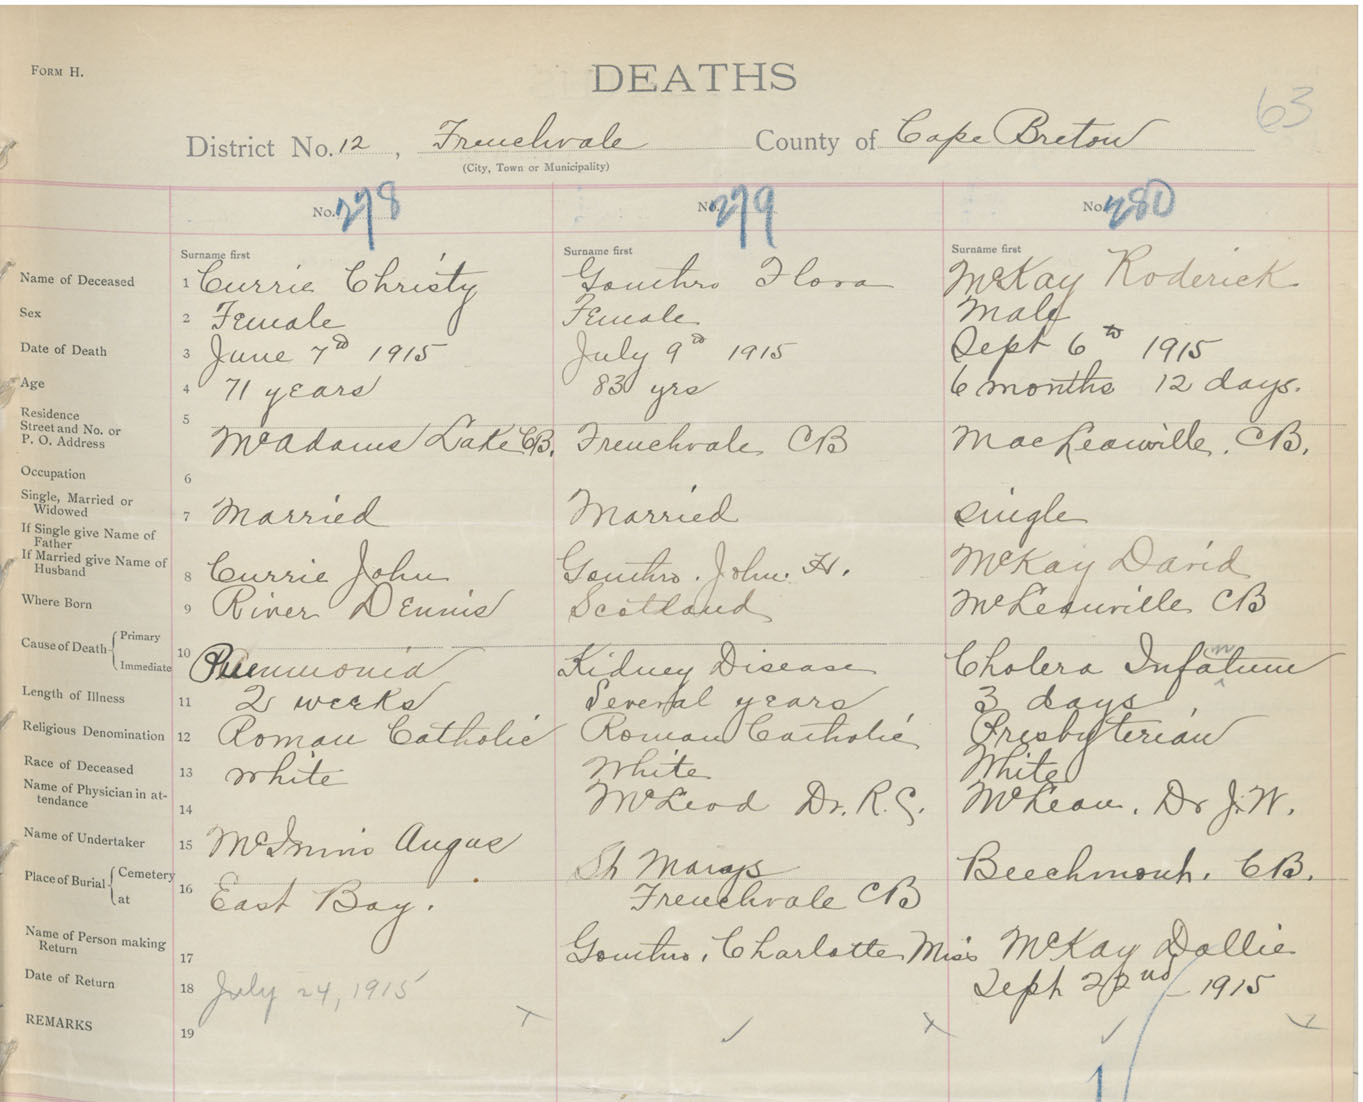 FORM H.
DEATHS
63
District No. 12, Frenchvale County of Cape Breton
(City, Town or Municipality)
No. 278 No. 279 No. 280
Surname first Surname first Surname first
Name of Deceased 1 Currie Christy Gouthro Flora McKay Roderick
Sex 2 Female Female Male
Date of Death 3 June 7th 1915 July 9th 1915 Sept 6th 1915
Age 4 71 years 83 yrs 6 months 12 days.
Residence
Street and No. or
P. O. Address 5 McAdams Lake CB. Frenchvale CB MacLeanville. CB.
Occupation 6
Single, Married or
Widowed 7 Married Married single
If Single give Name of
Father
If Married give Name of
Husband 8 Currie John Gouthro. John H. McKay David
Where Born 9 River Dennis Scotland McLeanville CB
Cause of Death { Primary
Immediate 10 Pneumonia Kidney Disease Cholera Infantum
Length of Illness 11 2 weeks Several years 3 days
Religious Denomination 12 Roman Catholic Roman Catholic Presbyterian
Race of Deceased 13 White White White
Name of Physician in at-
tendance 14 McLeod Dr. R. C. McLean. Dr J. W.
Name of Undertaker 15 McInnis Angus
Place of Burial { Cemetery St Marys Beechmont. CB.
at 16 East Bay. Frenchvale CB
Name of Person making
Return 17 Gouthro, Charlotte Miss McKay Dollie
Date of Return 18 July 24, 1915 Sept 22nd 1915
REMARKS 19